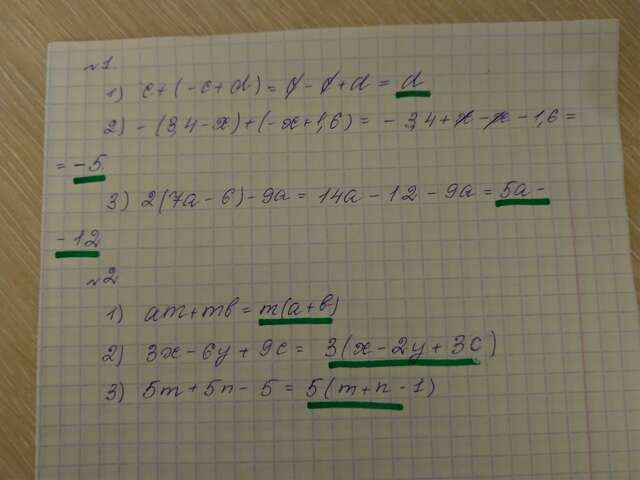 №1.
1) c+(-c+d)=c-c+d=d
2) -(3,4-x)+(-x+1,6)= -3,4+x-x-1,6=
=-5.
3) 2(7a-6)-9a=14a-12-9a=5a-
-12
№2
1) am+mb=m(a+b)
2) 3x-6y+9c= 3(x-2y+3c)
3) 5m+5n-5=5(m+n-1)